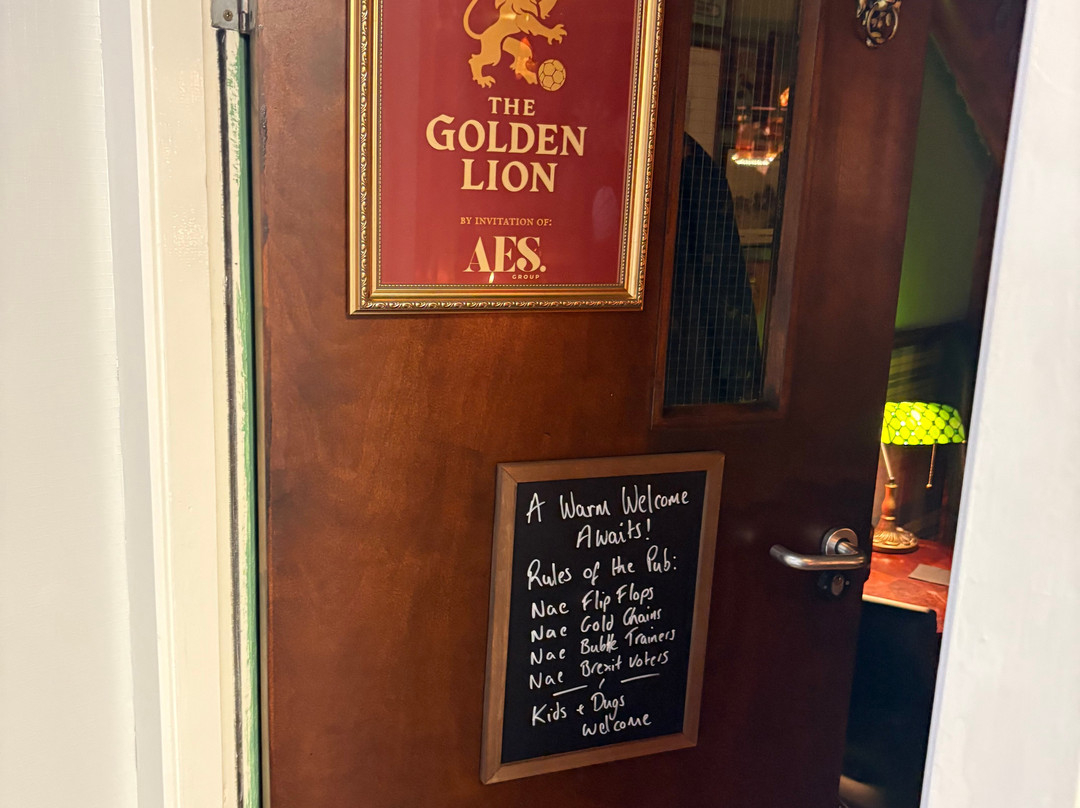 THE
GOLDEN
LION
BY INVITATION OF:
AES.
GROUP
A Warm Welcome
Awaits!
Rules of the Pub:
Nae Flip Flops
Nae Gold Chains
Nae Bubble Trainers
Nae Brexit Voters
Kids + Dugs
welcome